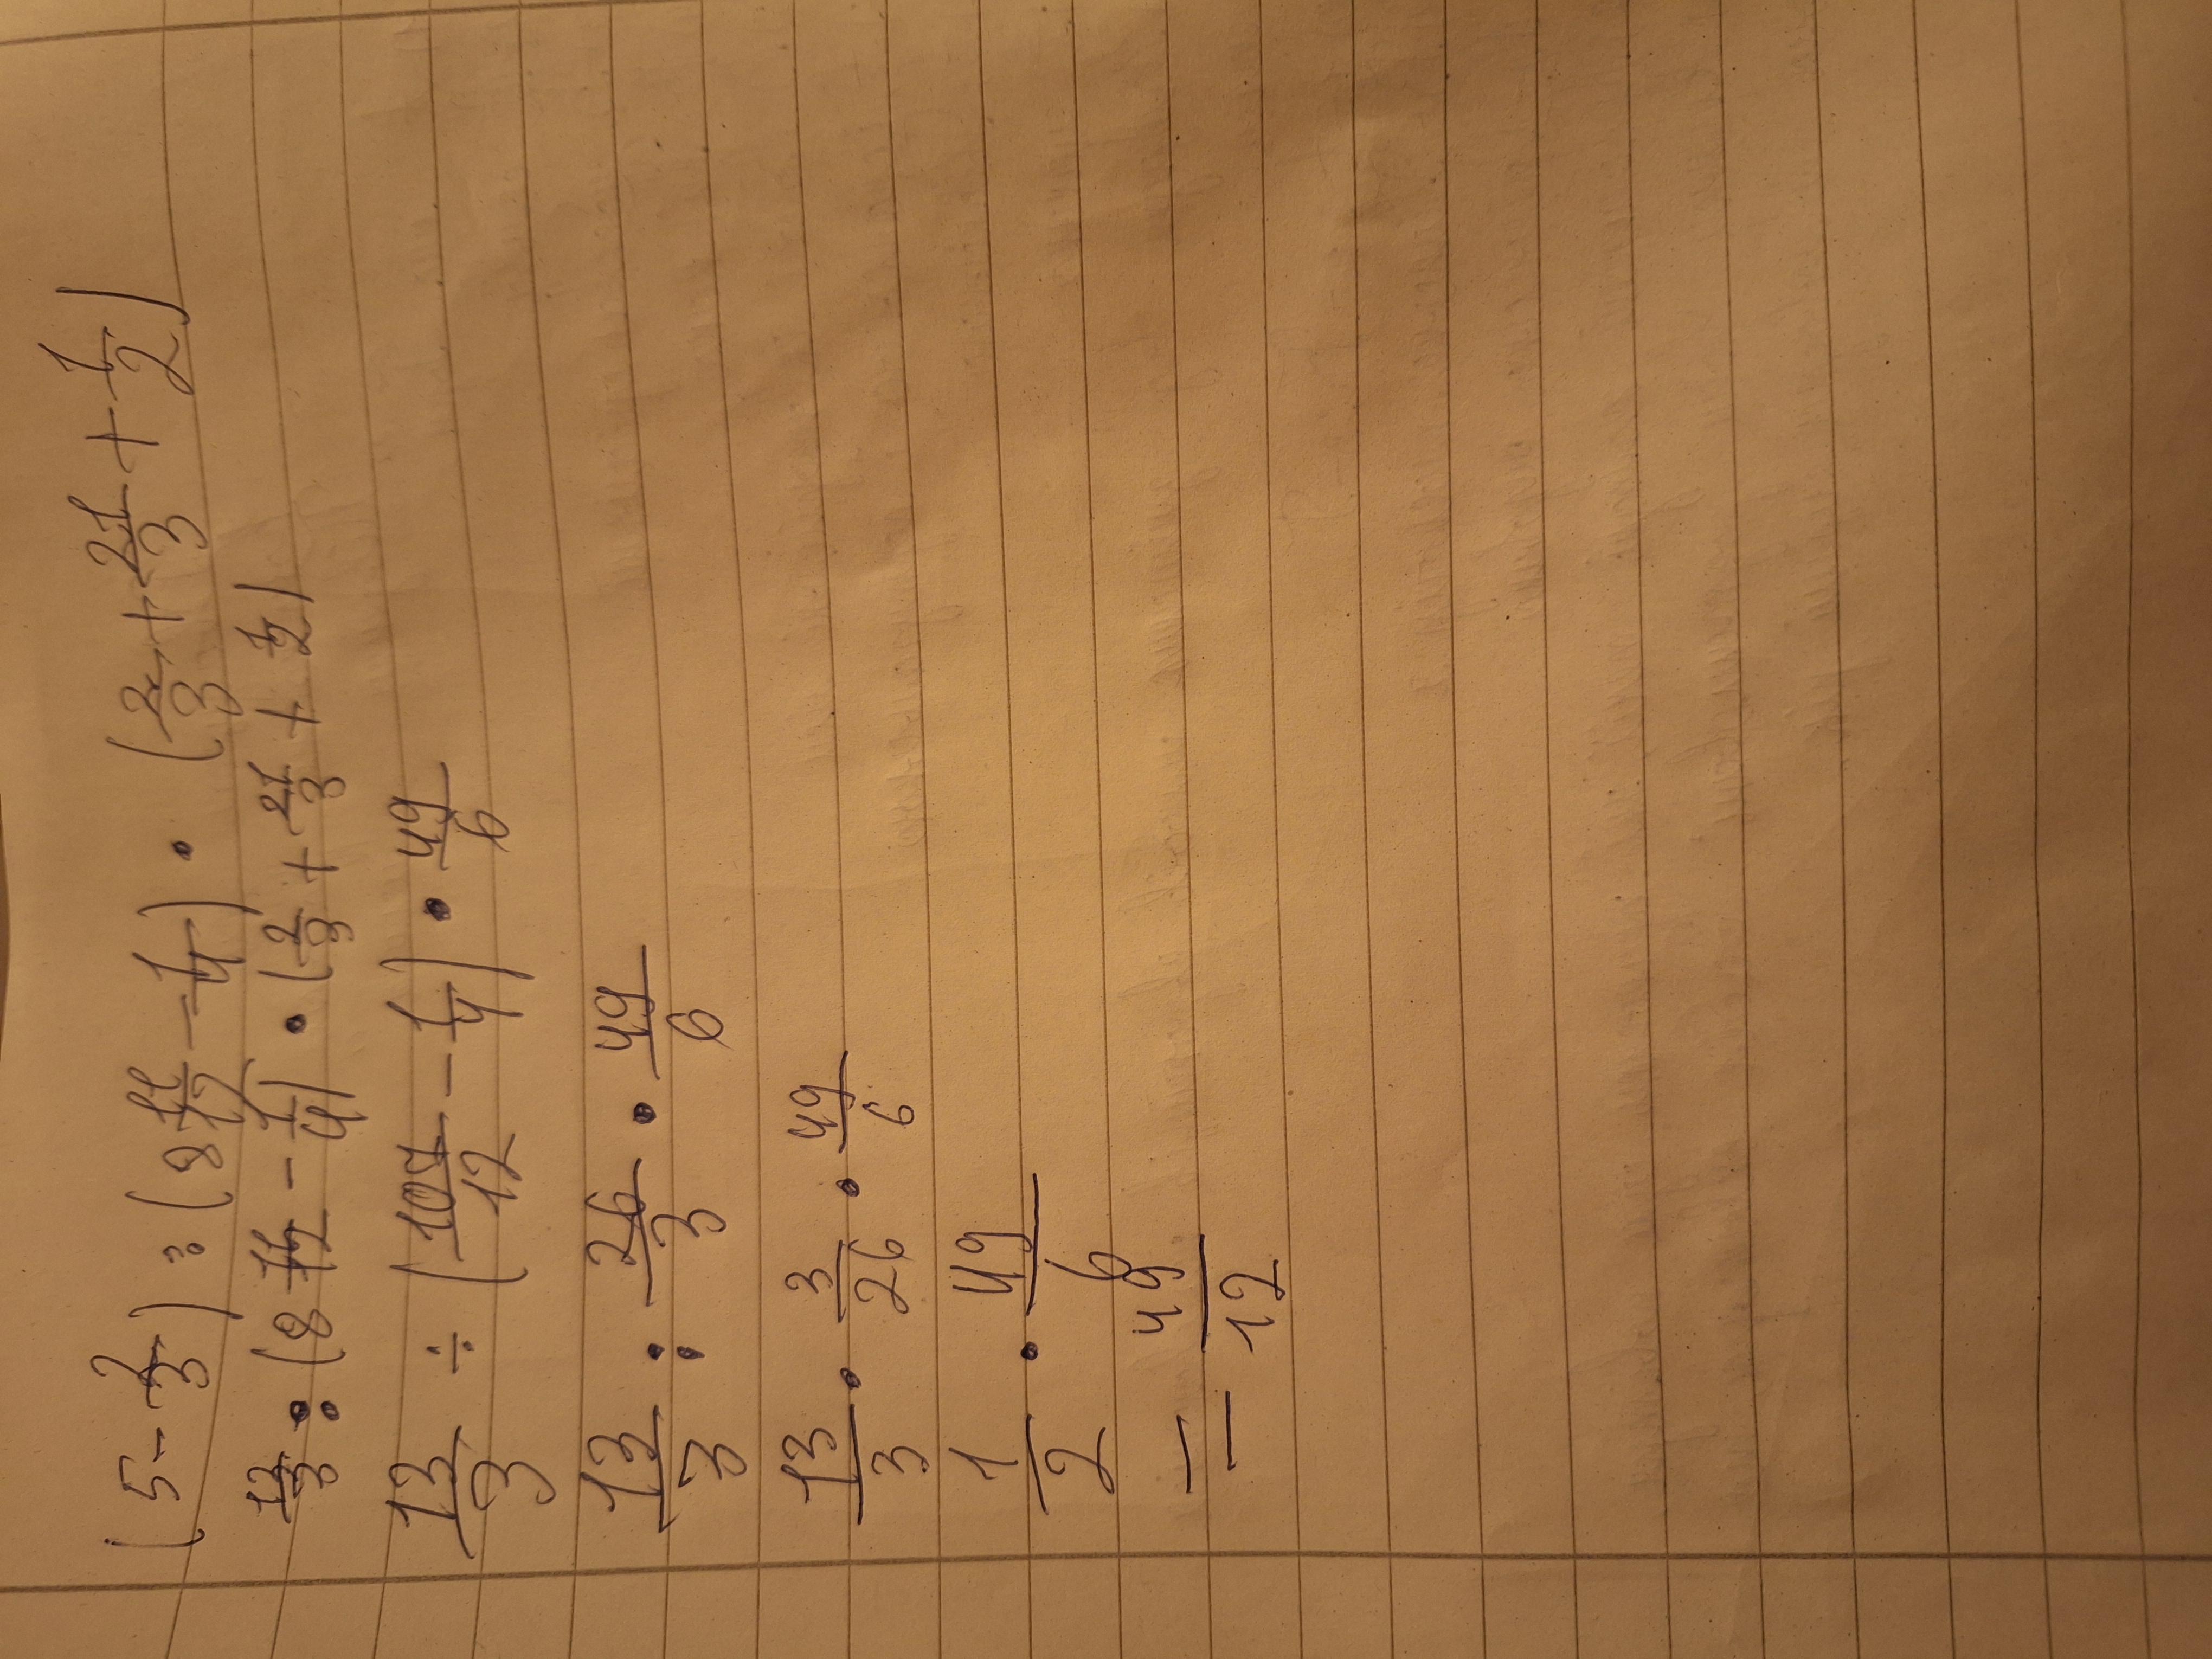 (5 - 2/3) : (8 11/12 - 1/4) · (2/3 + 21/3 + 1/2)
13/3 : (8 11/12 - 1/4) · (2/3 + 21/3 + 1/2)
13/3 ÷ (107/12 - 1/4) · 49/6
13/3 : 26/3 · 49/6
13/3 · 3/26 · 49/6
1/2 · 49/6
= 49/12